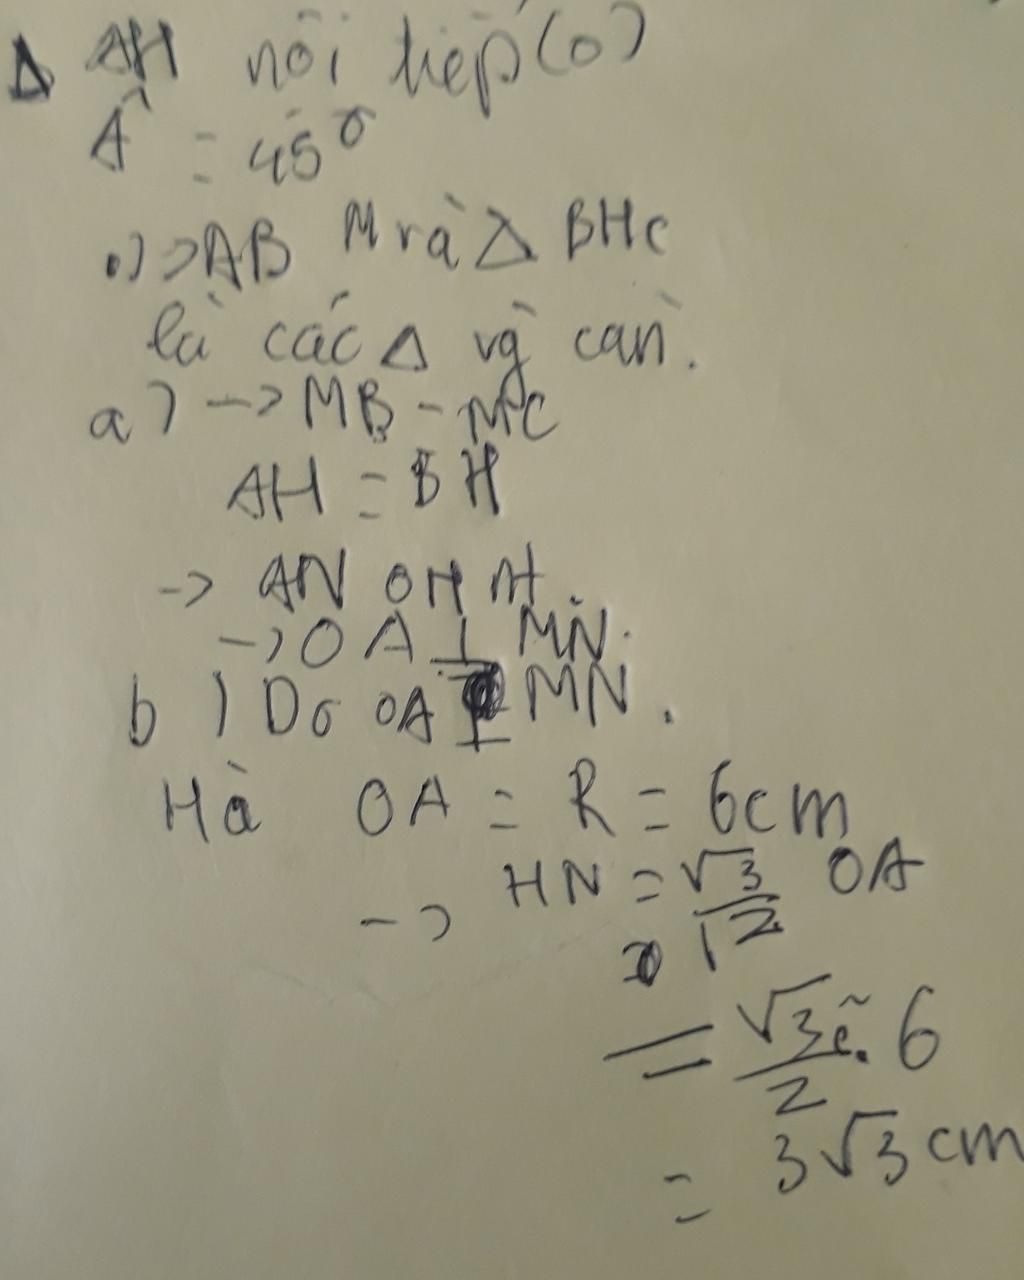 Δ AH nội tiếp (O)
Â = 45°
.) => AB M và Δ BHC
là các Δ vg cân.
a) -> MB - MC
AH = BH
-> AN OH nt.
-> OA ⊥ MN.
b) Do OA ⊥ MN.
Hà OA = R = 6cm
-> HN = √3/2 OA
= √3/2 . 6
= 3√3 cm